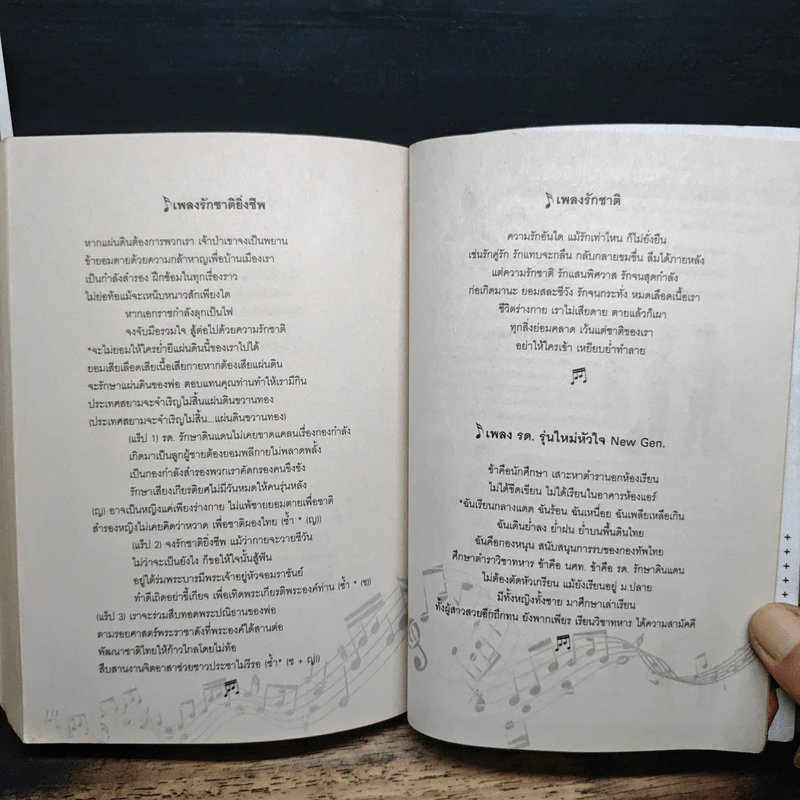 เพลงรักชาติยิ่งชีพ
หากแผ่นดินต้องการพวกเรา เจ้าป่าเขาจงเป็นพยาน
ข้ายอมตายด้วยความกล้าหาญเพื่อบ้านเมืองเรา
เป็นกำลังสำรอง ฝึกซ้อมในทุกเรื่องราว
ไม่ย่อท้อแม้จะเหน็บหนาวสักเพียงใด
หากเอกราชกำลังลุกเป็นไฟ
จงจับมือรวมใจ สู้ต่อไปด้วยความรักชาติ
*จะไม่ยอมให้ใครย่ำยีแผ่นดินนี้ของเราไปได้
ยอมเสียเลือดเสียเนื้อเสียกายหากต้องเสียแผ่นดิน
จะรักษาแผ่นดินของพ่อ ตอบแทนคุณท่านทำให้เรามีกิน
ประเทศสยามจะจำเริญไม่สิ้นแผ่นดินขวานทอง
(ประเทศสยามจะจำเริญไม่สิ้น...แผ่นดินขวานทอง)
(แร็ป 1) รด. รักษาดินแดนไม่เคยขาดแคลนเรื่องกองกำลัง
เกิดมาเป็นลูกผู้ชายต้องยอมพลีกายไม่พลาดพลั้ง
เป็นกองกำลังสำรองพวกเราคัดกรองคนขึงขัง
รักษาเสียงเกียรติยศไม่มีวันหมดให้คนรุ่นหลัง
(ญ) อาจเป็นหญิงแค่เพียงร่างกาย ไม่แพ้ชายยอมตายเพื่อชาติ
สำรองหญิงไม่เคยคิดว่าหวาด เพื่อชาติผองไทย (ซ้ำ * (ญ))
(แร็ป 2) จงรักชาติยิ่งชีพ แม้ว่ากายจะวายชีวัน
ไม่ว่าจะเป็นยังไง ก็ขอให้ใจนั้นสู้พัน
อยู่ใต้ร่มพระบารมีพระเจ้าอยู่หัวจอมราชันย์
ทำดีเถิดอย่าขี้เกียจ เพื่อเทิดพระเกียรติพระองค์ท่าน (ซ้ำ * (ช)
(แร็ป 3) เราจะร่วมสืบทอดพระปณิธานของพ่อ
ตามรอยศาสตร์พระราชาดังที่พระองค์ได้สานต่อ
พัฒนาชาติไทยให้ก้าวไกลโดยไม่ท้อ
สืบสานงานจิตอาสาช่วยชาวประชาไม่รีรอ (ซ้ำ* (ช + ญ))
เพลงรักชาติ
ความรักอันใด แม้รักเท่าไหน ก็ไม่ยั่งยืน
เช่นรักคู่รัก รักแทบจะกลืน กลับกลายขมขื่น ลืมได้ภายหลัง
แต่ความรักชาติ รักแสนพิศวาส รักจนสุดกำลัง
ก่อเกิดมานะ ยอมสละชีวัง รักจนกระทั่ง หมดเลือดเนื้อเรา
ชีวิตร่างกาย เราไม่เสียดาย ตายแล้วก็เผา
ทุกสิ่งย่อมคลาด เว้นแต่ชาติของเรา
อย่าให้ใครเข้า เหยียบย่ำทำลาย
เพลง รด. รุ่นใหม่หัวใจ New Gen.
ข้าคือนักศึกษา เสาะหาตำรานอกห้องเรียน
ไม่ได้ขีดเขียน ไม่ได้เรียนในอาคารห้องแอร์
*ฉันเรียนกลางแดด ฉันร้อน ฉันเหนื่อย ฉันเพลียเหลือเกิน
ฉันเดินย่ำลง ย่ำฝน ย่ำบนพื้นดินไทย
ฉันคือกองหนุน สนับสนุนการรบของกองทัพไทย
ศึกษาตำราวิชาทหาร ข้าคือ นศท. ข้าคือ รด. รักษาดินแดน
ไม่ต้องตัดหัวเกรียน แม้ยังเรียนอยู่ ม.ปลาย
มีทั้งหญิงทั้งชาย มาศึกษาเล่าเรียน
ทั้งผู้สาวสวยอีกถึกทน ยังพากเพียร เรียนวิชาทหาร ได้ความสามัคคี